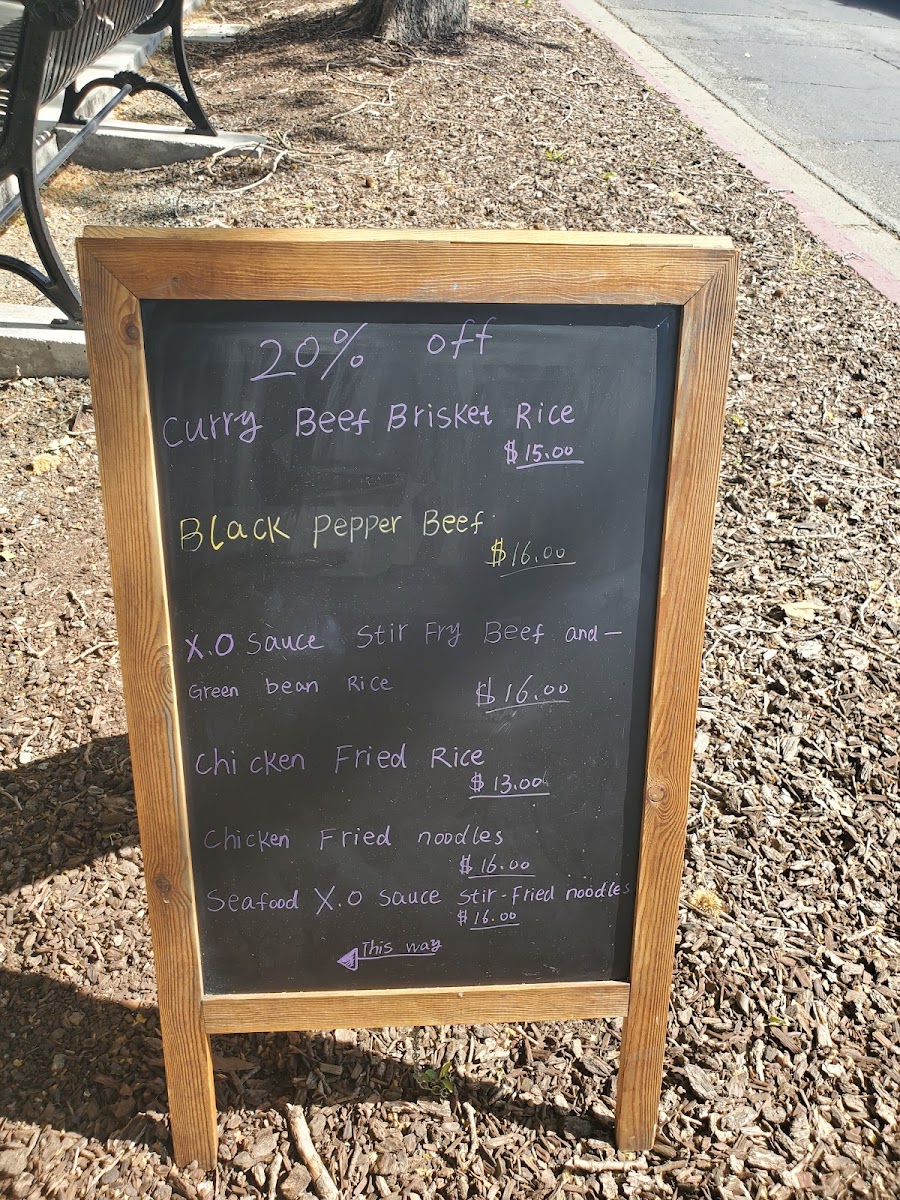 20% off
Curry Beef Brisket Rice
$15.00
Black Pepper Beef
$16.00
X.O Sauce Stir Fry Beef and-
Green bean Rice $16.00
Chicken Fried Rice
$13.00
Chicken Fried noodles
$16.00
Seafood X.O Sauce Stir-Fried noodles
$16.00
This way